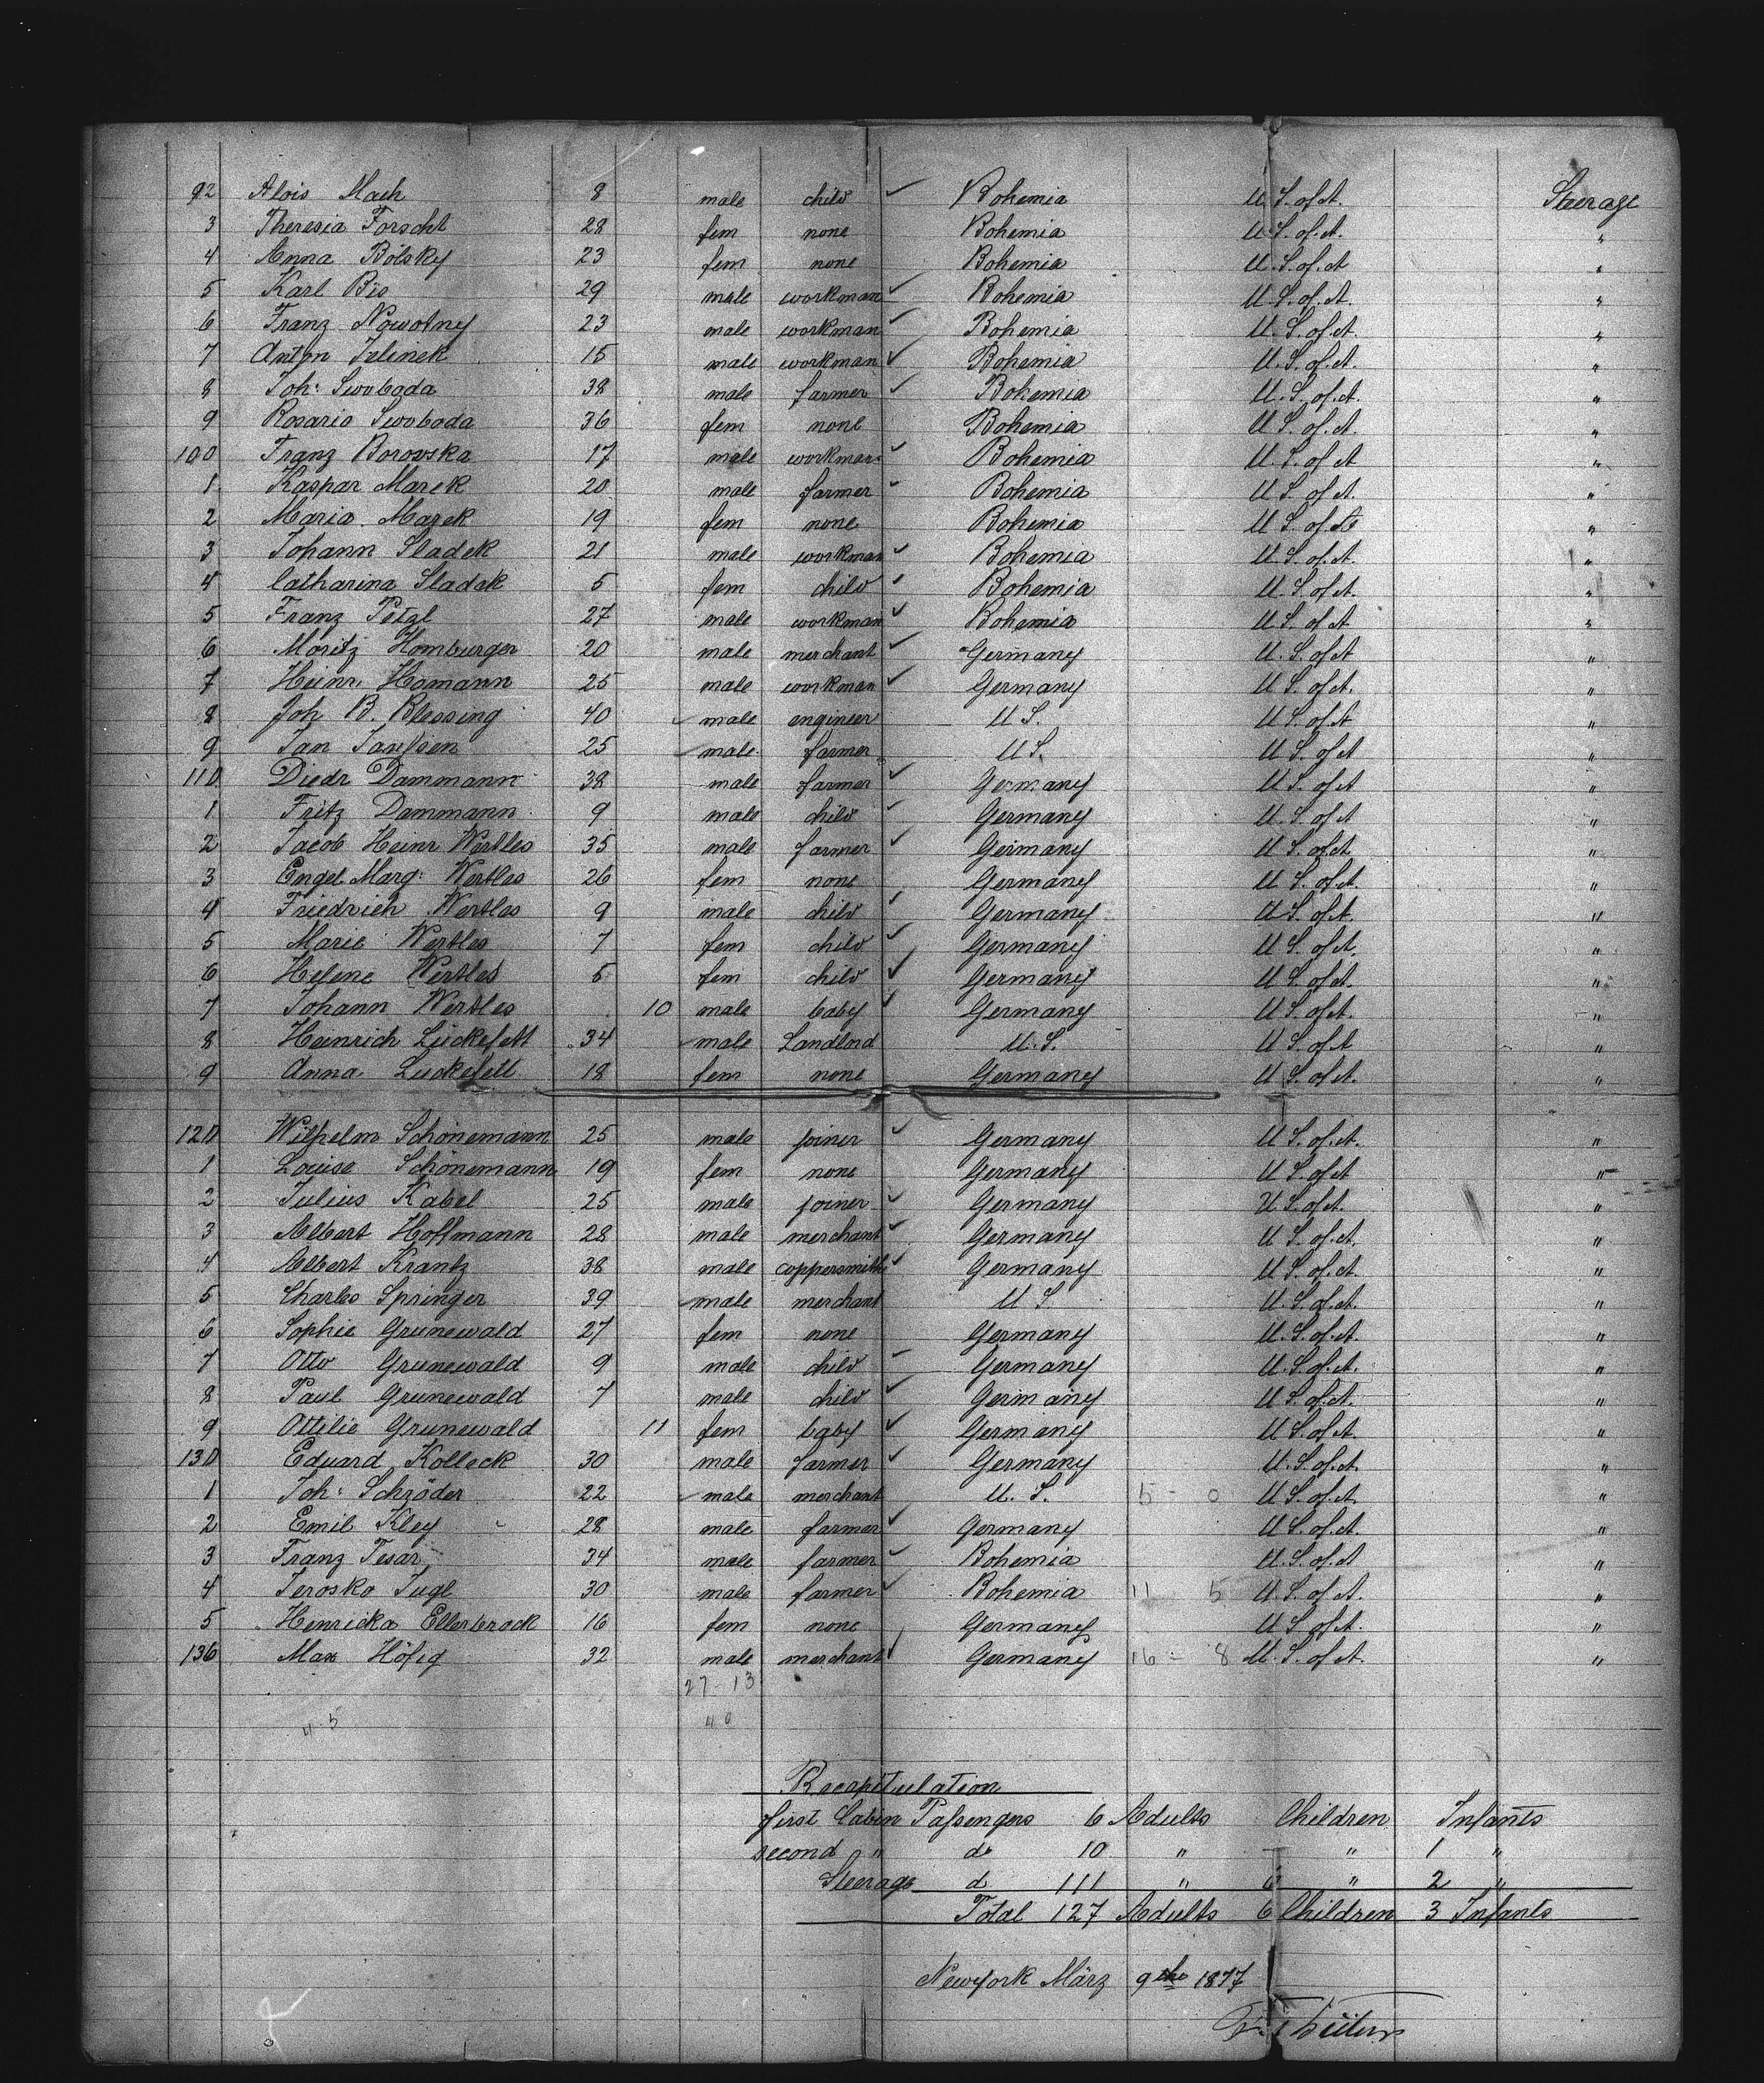 92 Alois Mach 8 male child ✓ Bohemia U.S. of A. Steerage
3 Theresia Forscht 28 fem none Bohemia U.S. of A. "
4 Anna Bölsky 23 fem none Bohemia U.S. of A "
5 Karl Bis 29 male workman ✓ Bohemia U.S. of A. "
6 Franz Nowotny 23 male workman ✓ Bohemia U.S. of A "
7 Anton Jelinek 15 male workman ✓ Bohemia U.S. of A. "
8 Joh: Swoboda 38 male farmer ✓ Bohemia U.S. of A. "
9 Rosaria Swoboda 36 fem none Bohemia U.S. of A. "
100 Franz Borovska 17 male workman ✓ Bohemia U.S. of A "
1 Kaspar Marek 20 male farmer ✓ Bohemia U.S. of A. "
2 Maria Marek 19 fem none Bohemia U.S. of A "
3 Johann Sladek 21 male workman ✓ Bohemia U.S. of A. "
4 Catharina Sladek 5 fem child ✓ Bohemia U.S. of A. "
5 Franz Petzl 27 male workman ✓ Bohemia U.S. of A "
6 Moritz Homburger 20 male merchant ✓ Germany U.S. of A "
7 Heinr. Homann 25 male workman ✓ Germany U.S. of A. "
8 Joh B. Blessing 40 male engineer U.S. U.S. of A "
9 Jan Janssen 25 male farmer U.S. U.S. of A "
110 Diedr Dammann 38 male farmer ✓ Germany U.S. of A "
1 Fritz Dammann 9 male child ✓ Germany U.S. of A "
2 Jacob Heinr Wertles 35 male farmer ✓ Germany U.S. of A "
3 Engel Marg: Wertles 26 fem none Germany U.S. of A. "
4 Friedrich Wertles 9 male child ✓ Germany U.S. of A. "
5 Marie Wertles 7 fem child ✓ Germany U.S. of A. "
6 Helene Wertles 5 fem child ✓ Germany U.S. of A. "
7 Johann Wertles 10 male baby ✓ Germany U.S. of A. "
8 Heinrich Lückefett 34 male Landlord U.S. U.S. of A "
9 Anna Luckefett 18 fem none Germany U.S. of A. "
120 Wilhelm Schönemann 25 male joiner ✓ Germany U.S. of A. "
1 Louise Schönemann 19 fem none Germany U.S. of A "
2 Julius Kabel 25 male joiner ✓ Germany U.S. of A. "
3 Albert Hoffmann 28 male merchant ✓ Germany U.S. of A. "
4 Albert Krantz 38 male coppersmith ✓ Germany U.S. of A. "
5 Charles Springer 39 male merchant U.S. U.S. of A. "
6 Sophie Grunewald 27 fem none Germany U.S. of A. "
7 Otto Grunewald 9 male child ✓ Germany U.S. of A. "
8 Paul Grunewald 7 male child ✓ Germany U.S. of A. "
9 Ottilie Grunewald 11 fem baby ✓ Germany U.S. of A. "
130 Eduard Kolleck 30 male farmer ✓ Germany U.S. of A. "
1 Joh: Schröder 22 male merchant U.S. 5 - 0 U.S. of A. "
2 Emil Kley 28 male farmer ✓ Germany U.S. of A. "
3 Franz Tesar 34 male farmer ✓ Bohemia U.S. of A "
4 Jerosko Jugl 30 male farmer ✓ Bohemia 11 5 U.S. of A. "
5 Henricka Ellerbrock 16 fem none Germany U.S. of A. "
136 Max Höfig 32 male merchant ✓ Germany 16 - 8 U.S. of A. "
27 - 13
4 - 5 40
Recapitulation
first Cabin Passengers 6 Adults Children Infants
second " do 10 " " 1 "
Steerage d 111 " 6 " 2 "
Total 127 Adults 6 Children 3 Infants
Newyork März 9the 1877